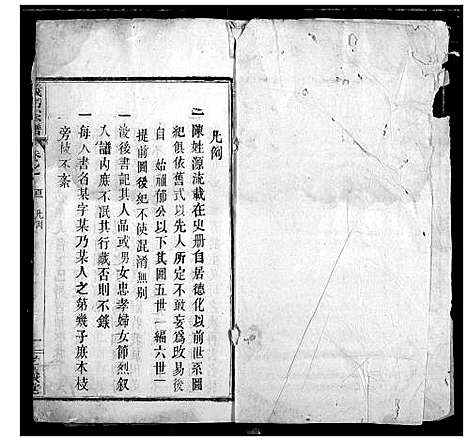 凡例
一陳姓源流載在史册自居德化以前世系圖
紀俱依舊式以先人所定不敢妄爲改易後
自始祖郁公以下其圖五世一編六世一
提前圖後紀不使混淆無别
一没後書記其人品或男女忠孝婦女節烈叙
入譜內庶不泯其行蔵否則不錄
一每人書名某字某乃某人之第幾子庶本枝
旁披不紊
凡例